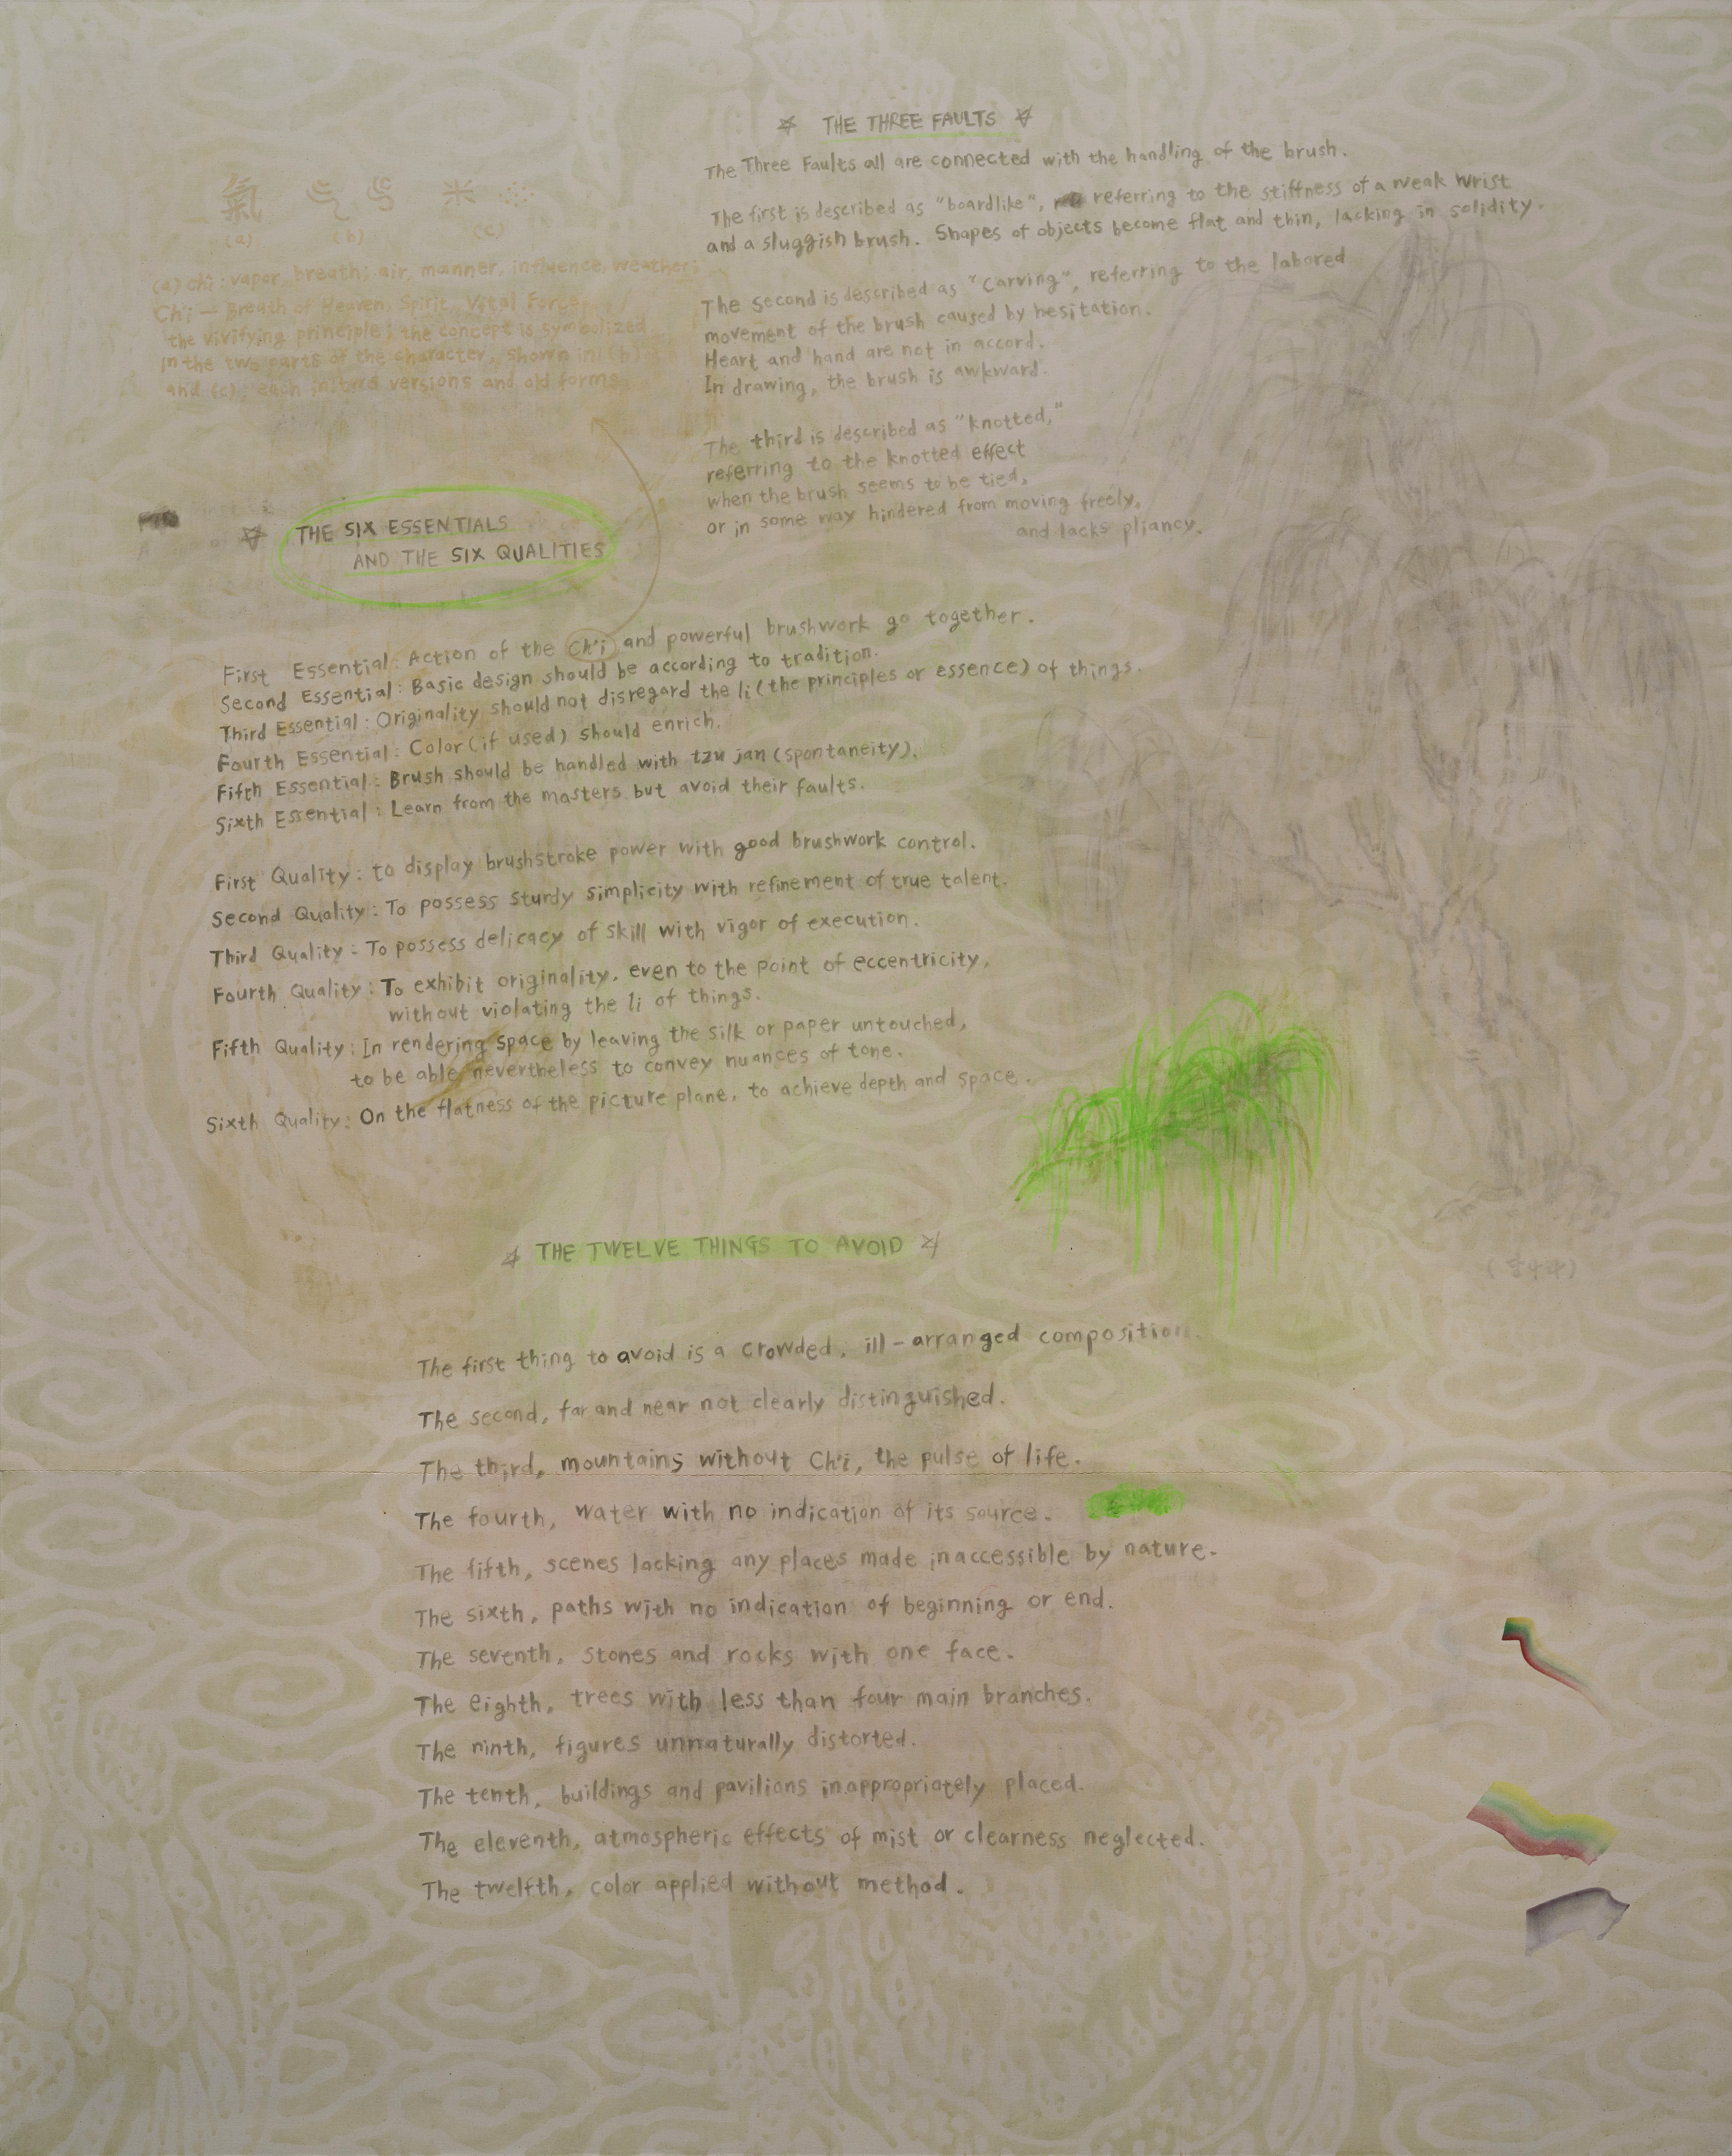 THE THREE FAULTS
The Three Faults all are connected with the handling of the brush.
The first is described as "boardlike", referring to the stiffness of a weak wrist
and a sluggish brush. Shapes of objects become flat and thin, lacking in solidity.
The second is described as "carving", referring to the labored
movement of the brush caused by hesitation.
Heart and hand are not in accord.
In drawing, the brush is awkward.
The third is described as "knotted,"
referring to the knotted effect
when the brush seems to be tied,
or in some way hindered from moving freely,
and lacks pliancy.
氣
(a) (b) (c)
(a) ch'i: vapor, breath; air, manner, influence, weather;
Ch'i — Breath of Heaven, Spirit, Vital Force,
the vivifying principle; the concept is symbolized
in the two parts of the character, shown in (b)
and (c); each versions and old forms
THE SIX ESSENTIALS
AND THE SIX QUALITIES
First Essential: Action of the Ch'i and powerful brushwork go together.
Second Essential: Basic design should be according to tradition.
Third Essential: Originality should not disregard the li (the principles or essence) of things.
Fourth Essential: Color (if used) should enrich.
Fifth Essential: Brush should be handled with tzu jan (spontaneity).
Sixth Essential: Learn from the masters but avoid their faults.
First Quality: to display brushstroke power with good brushwork control.
Second Quality: To possess sturdy simplicity with refinement of true talent.
Third Quality: To possess delicacy of skill with vigor of execution.
Fourth Quality: To exhibit originality, even to the point of eccentricity,
without violating the li of things.
Fifth Quality: In rendering space by leaving the silk or paper untouched,
to be able nevertheless to convey nuances of tone.
Sixth Quality: On the flatness of the picture plane, to achieve depth and space.
THE TWELVE THINGS TO AVOID
The first thing to avoid is a crowded, ill-arranged composition.
The second, far and near not clearly distinguished.
The third, mountains without Ch'i, the pulse of life.
The fourth, water with no indication of its source.
The fifth, scenes lacking any places made inaccessible by nature.
The sixth, paths with no indication of beginning or end.
The seventh, stones and rocks with one face.
The eighth, trees with less than four main branches.
The ninth, figures unnaturally distorted.
The tenth, buildings and pavilions inappropriately placed.
The eleventh, atmospheric effects of mist or clearness neglected.
The twelfth, color applied without method.